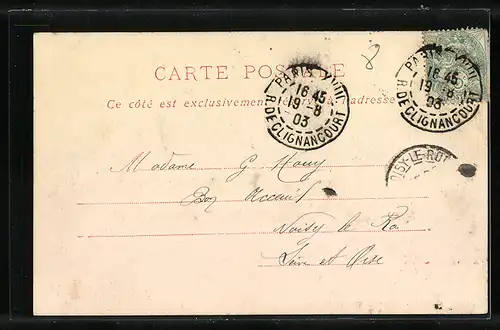 8
CARTE POSTALE
Ce côté est exclusivement réservé à l'adresse
PARIS XVIII
16 45
19 - 8
03
R. DE CLIGNANCOURT
PARIS XVIII
16 45
19 - 8
03
R. DE CLIGNANCOURT
OISY-LE-RO
Madame G
Bon Acceuil
Noisy le Roi
Seine et Oise